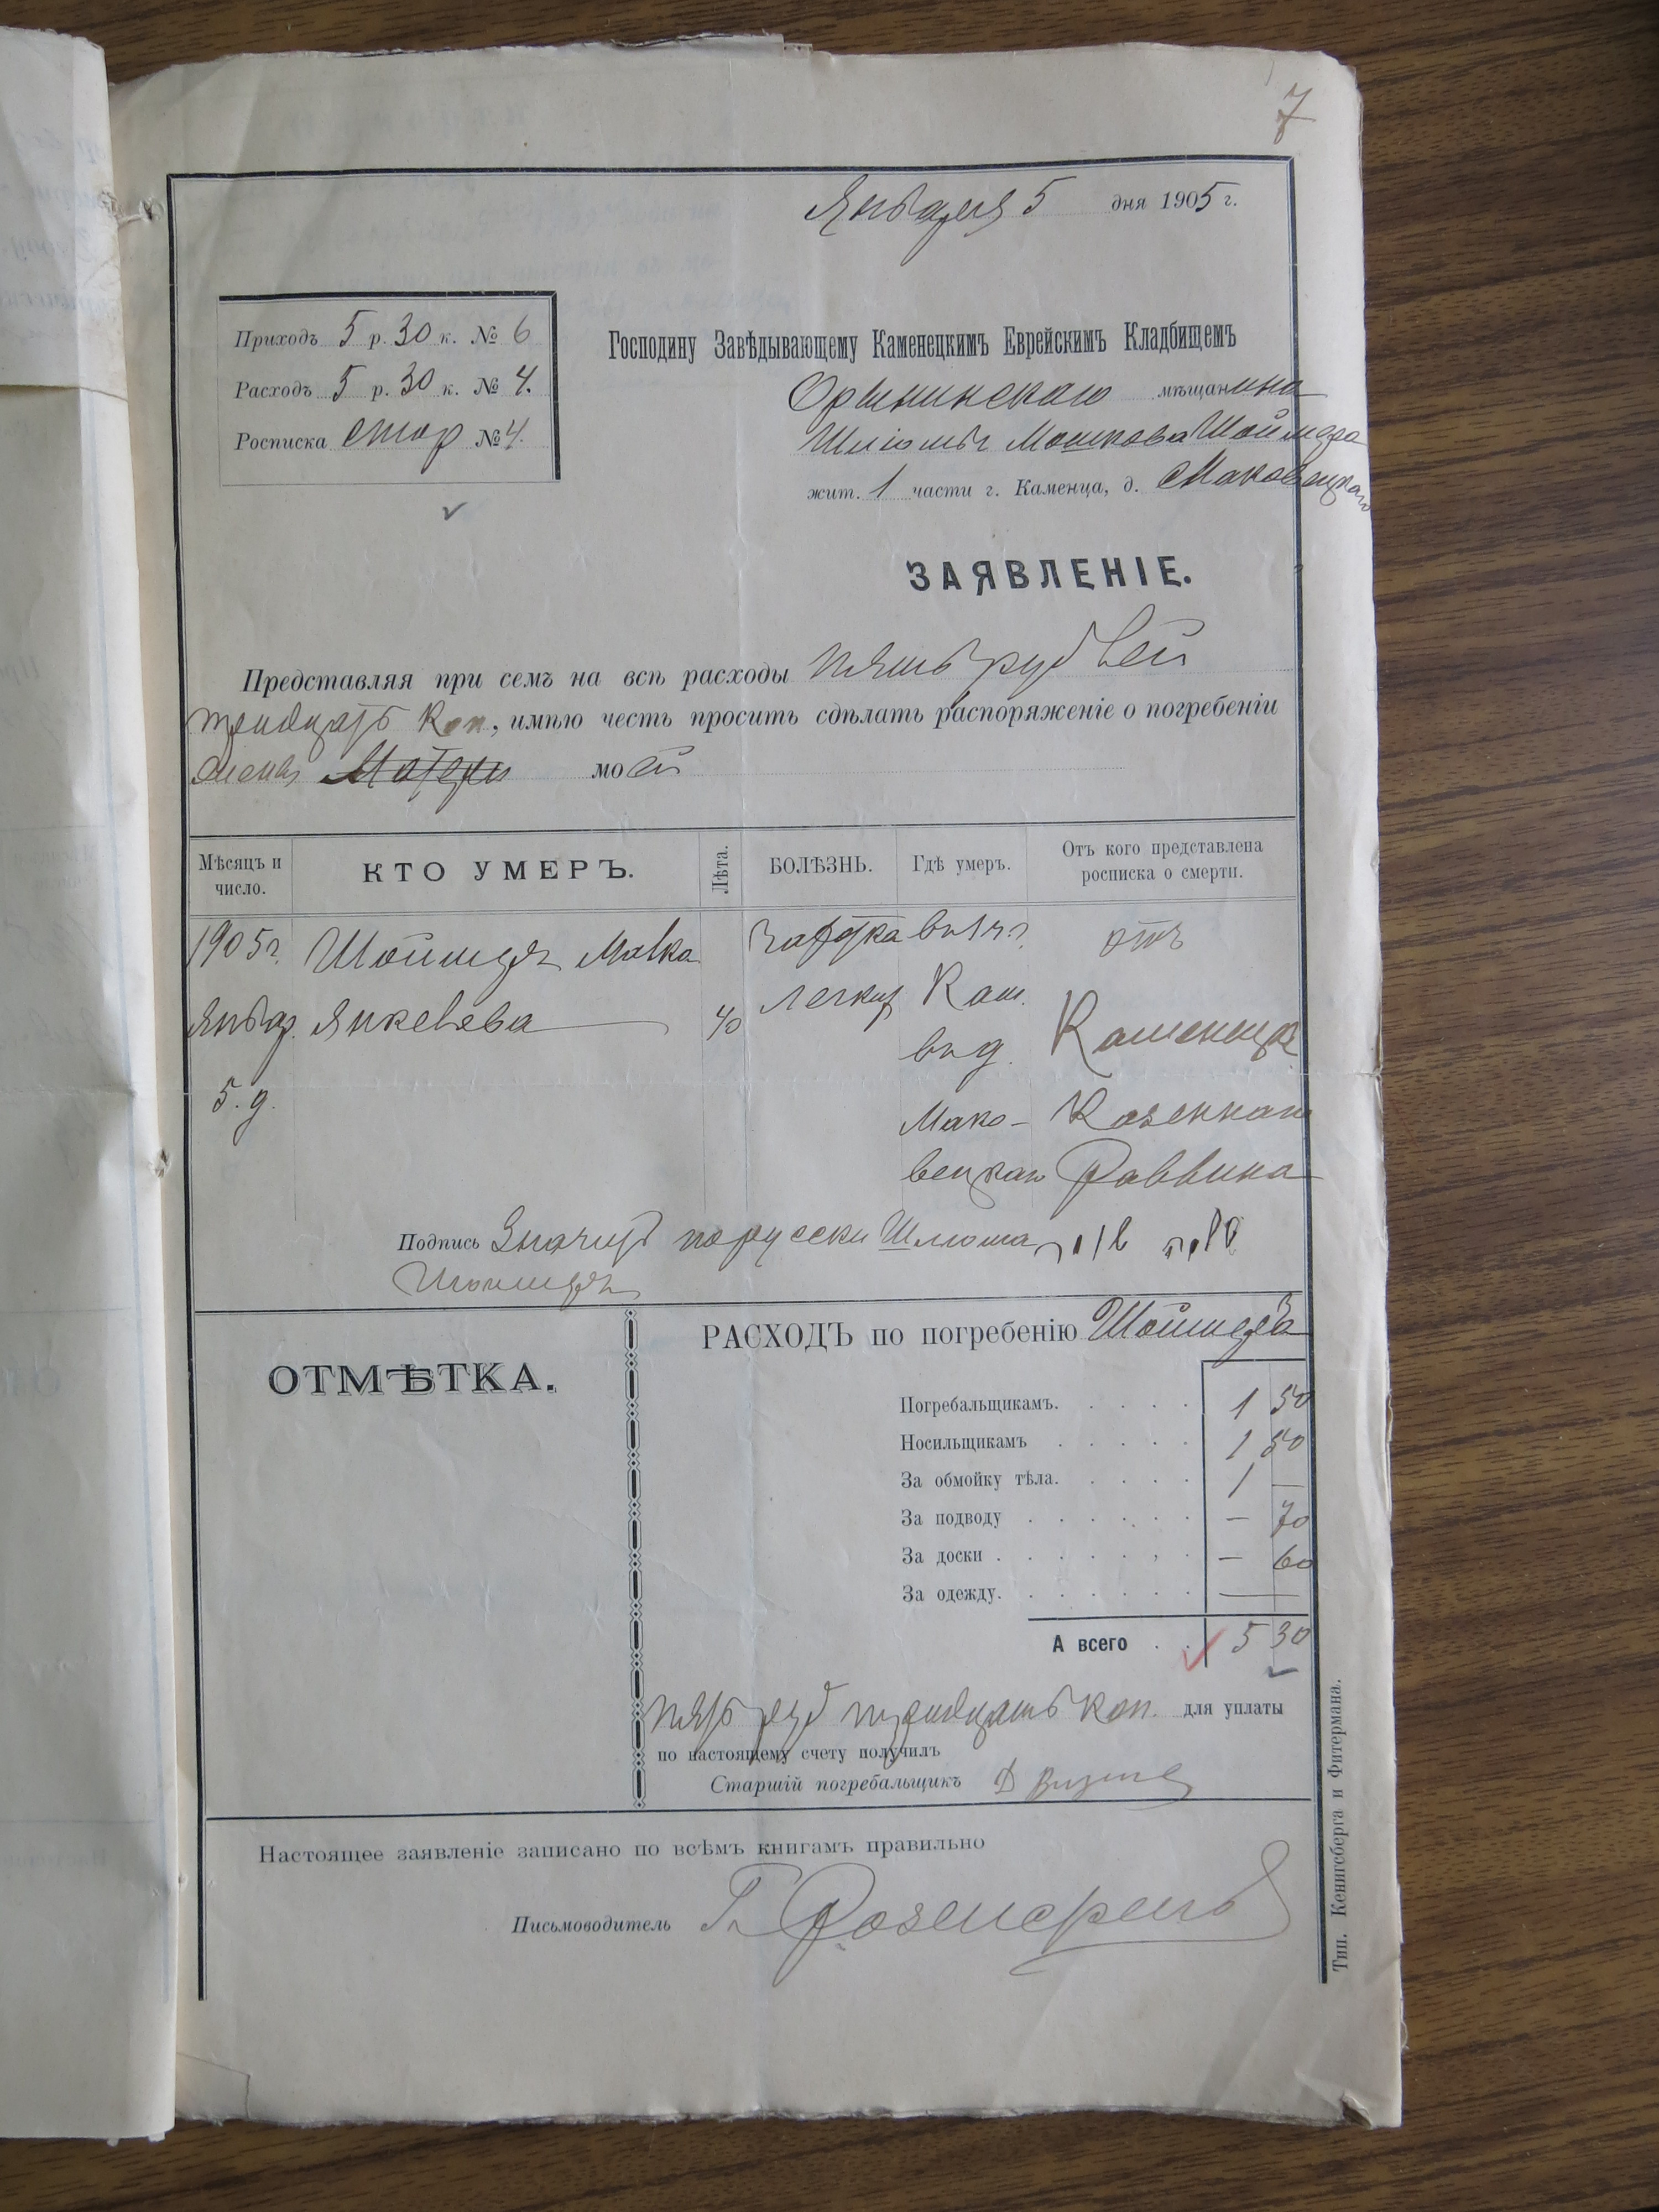 7
Января 5 дня 1905 г.
Приходъ 5 р. 30 к. № 6
Расходъ 5 р. 30 к. № 4.
Росписка стор № 4.
Господину Завѣдывающему Каменецкимъ Еврейскимъ Кладбищемъ
Орининскаго мѣщанина
Шлиомы Мошкова
жит. 1 части г. Каменца, д. Маковецкаго
ЗАЯВЛЕНІЕ.
Представляя при семъ на всѣ расходы пять рублей
тридцать коп, имѣю честь просить сдѣлать распоряженіе о погребеніи
жены Матери моей
Мѣсяцъ и число.
КТО УМЕРЪ.
Лѣта.
БОЛѢЗНЬ.
Гдѣ умеръ.
Отъ кого представлена росписка о смерти.
1905 г. Малка въ 1 ч. отъ
Январ. Янкелева 40 легких Кам.
5. д. въ д. Каменецк
Мако- Казеннаго
вецкаго Раввина
Подпись Значит по русски Шлиома
ОТМѢТКА.
РАСХОДЪ по погребенію
Погребальщикамъ. 1 50
Носильщикамъ 1 50
За обмойку тѣла. 1 —
За подводу — 70
За доски — 60
За одежду. —
А всего 5 30
пять руб тридцать коп. для уплаты
по настоящему счету получилъ
Старшій погребальщикъ
Настоящее заявленіе записано по всѣмъ книгамъ правильно
Письмоводитель
Тип. Кенигсберга и Фитермана.